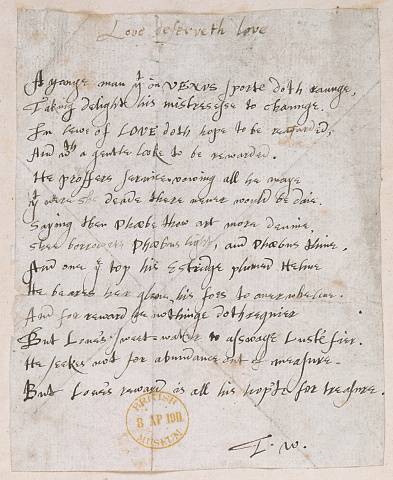 Love deserveth love
A yonge man yt on VENUS sporte doth raunge,
Taking delighte his mistresse to chaunge.
In lewe of LOVE doth hope to be regarded,
And wth a gentle looke to be rewarded.
He proffers service, vowing all he maye
yt were she deade there never would be daie.
Saying then Phæbe thow art more devine,
Shee borrowes Phœbus light, and Phœbus thine.
And one ye top his Estridge plumed Helme
He beares her glove, his foes to overwhelme.
And for reward he nothinge doth requier
But Loves sweet water to asswage Lusts fier.
He seekes not for abundance but a measure.
But Loves reward is all his hop'te for treasure.
T. W.
BRITISH
8 AP 1911
MUSEUM